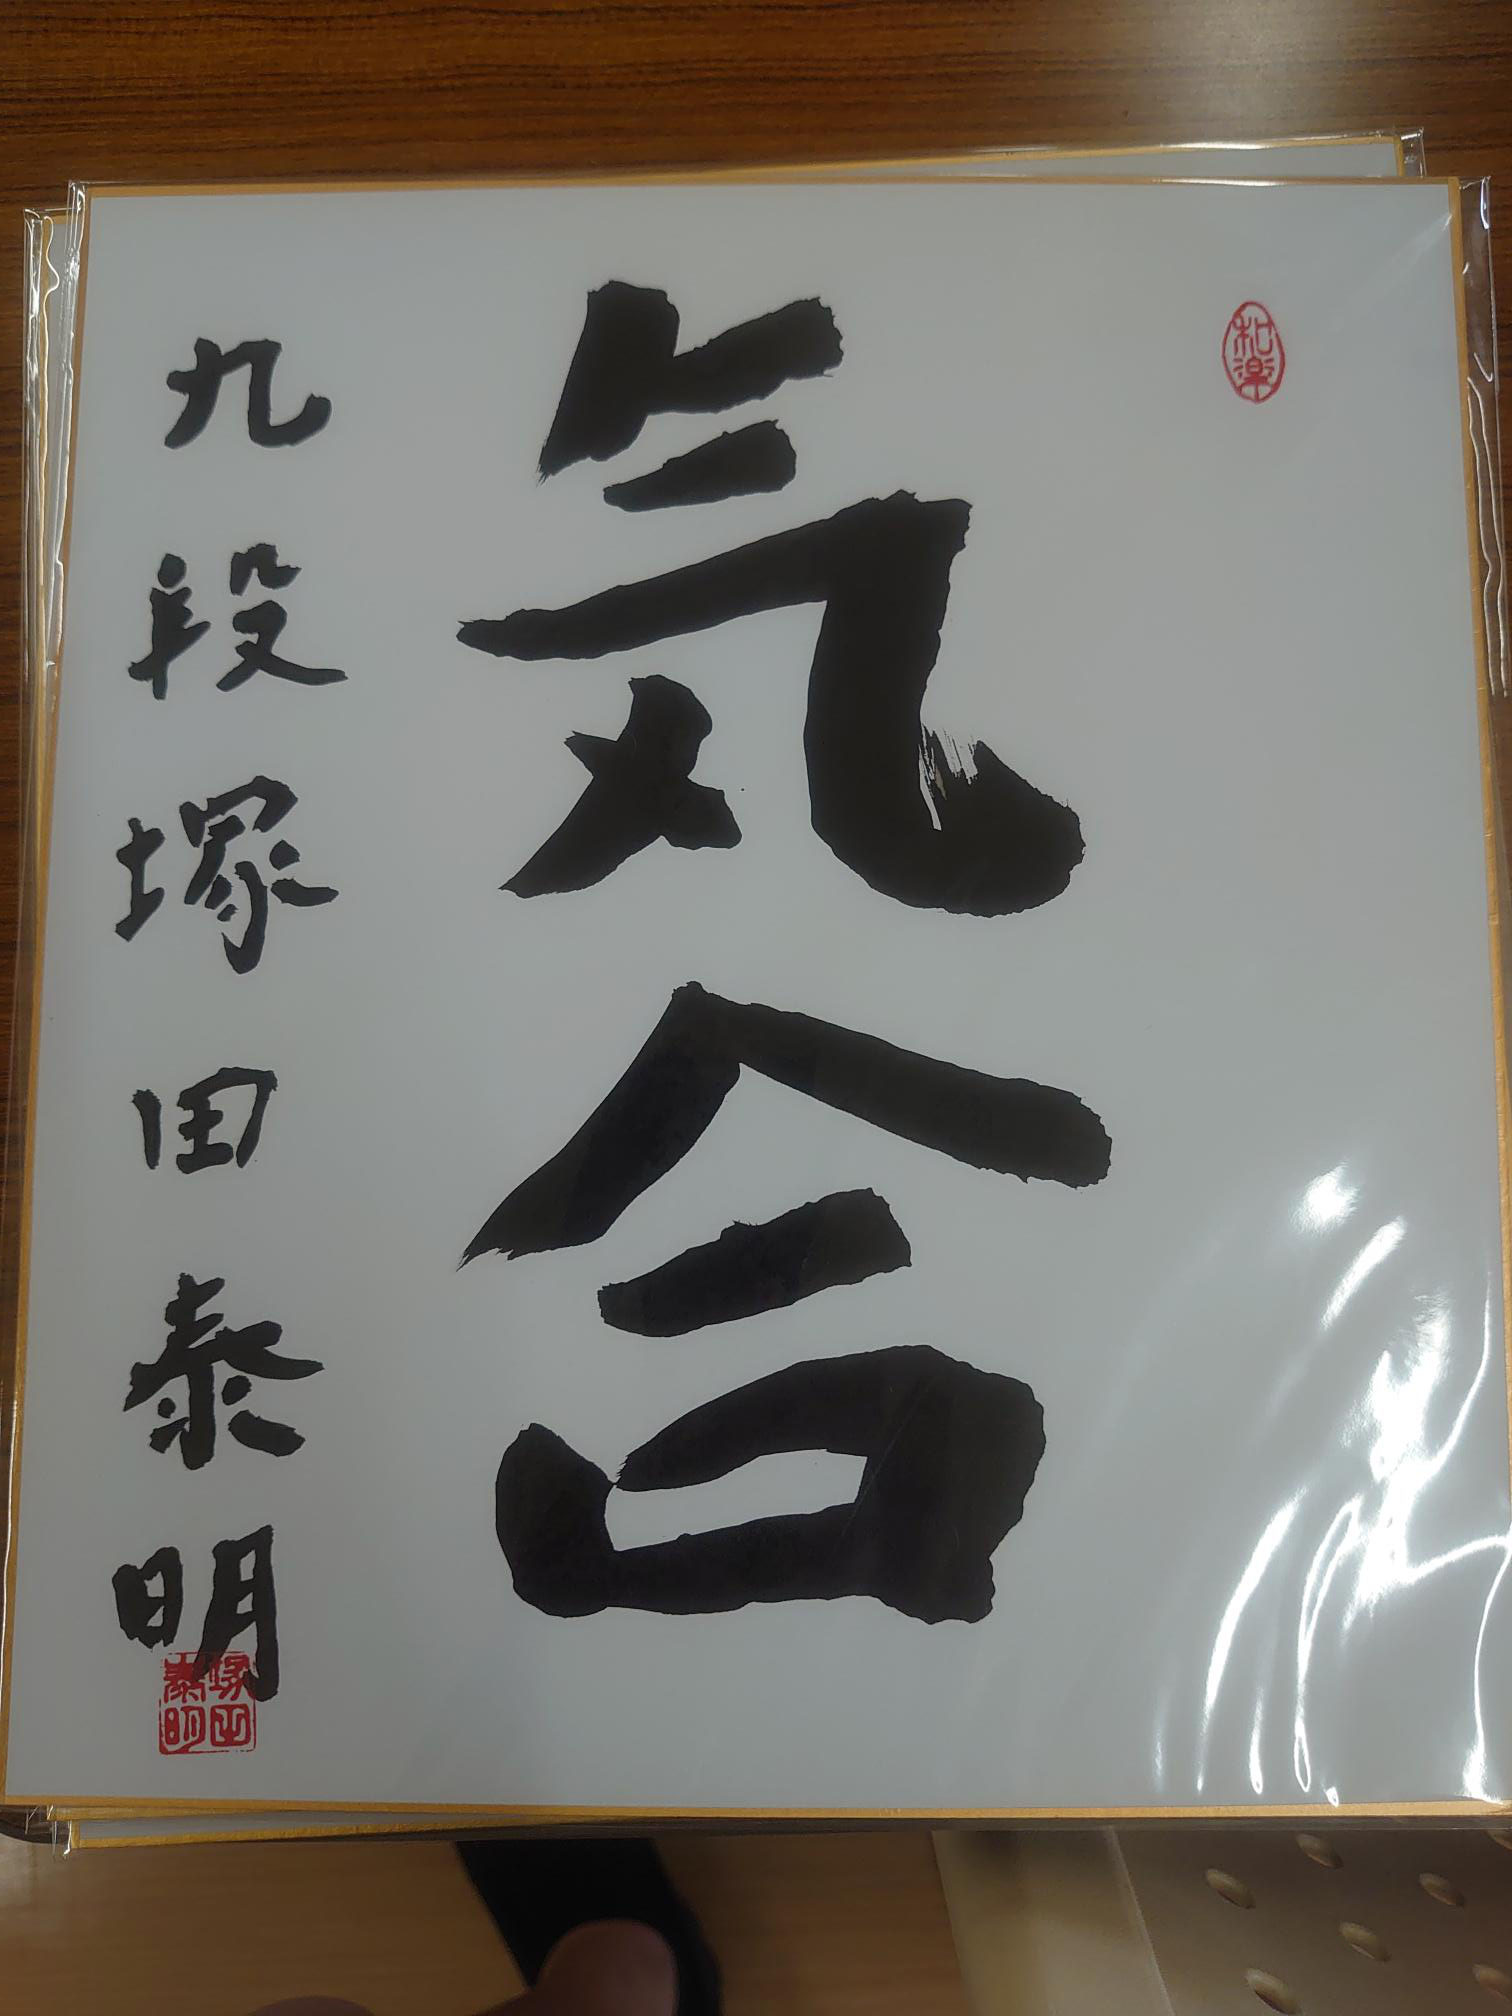 和楽
気合
九段 塚田泰明
塚田
泰明